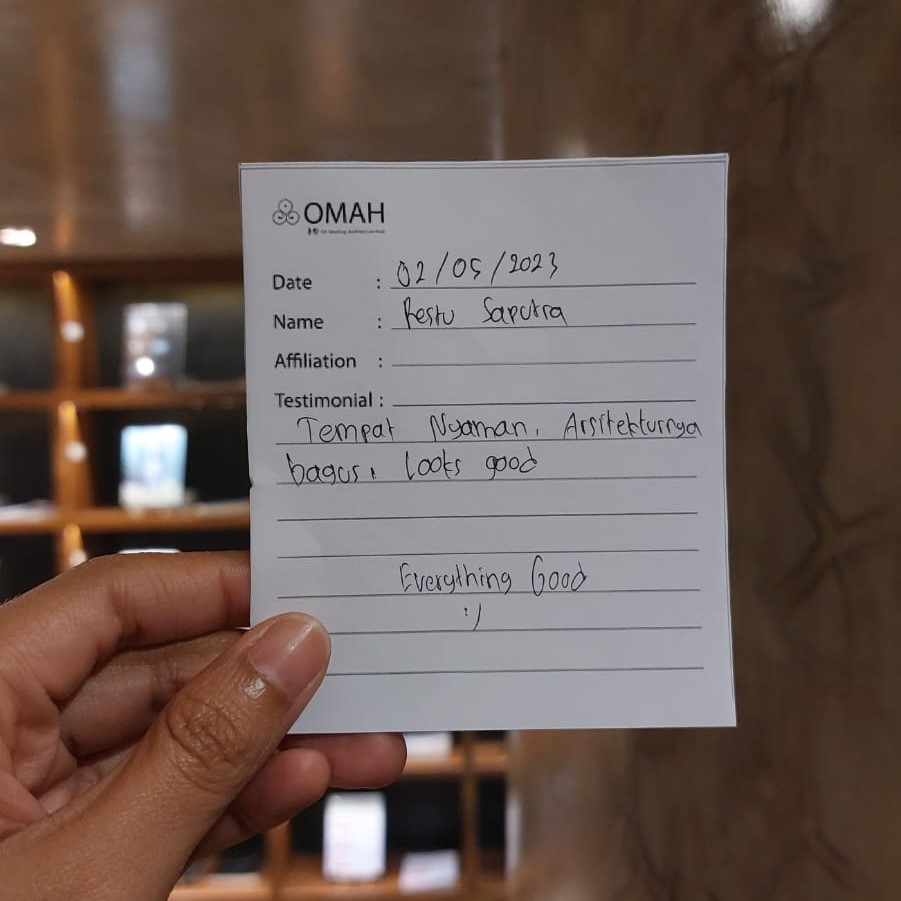 OMAH
Date : 02/05/2023
Name : Restu Saputra
Affiliation :
Testimonial :
Tempat Nyaman, Arsitekturnya
bagus, looks good
Everything Good
:)